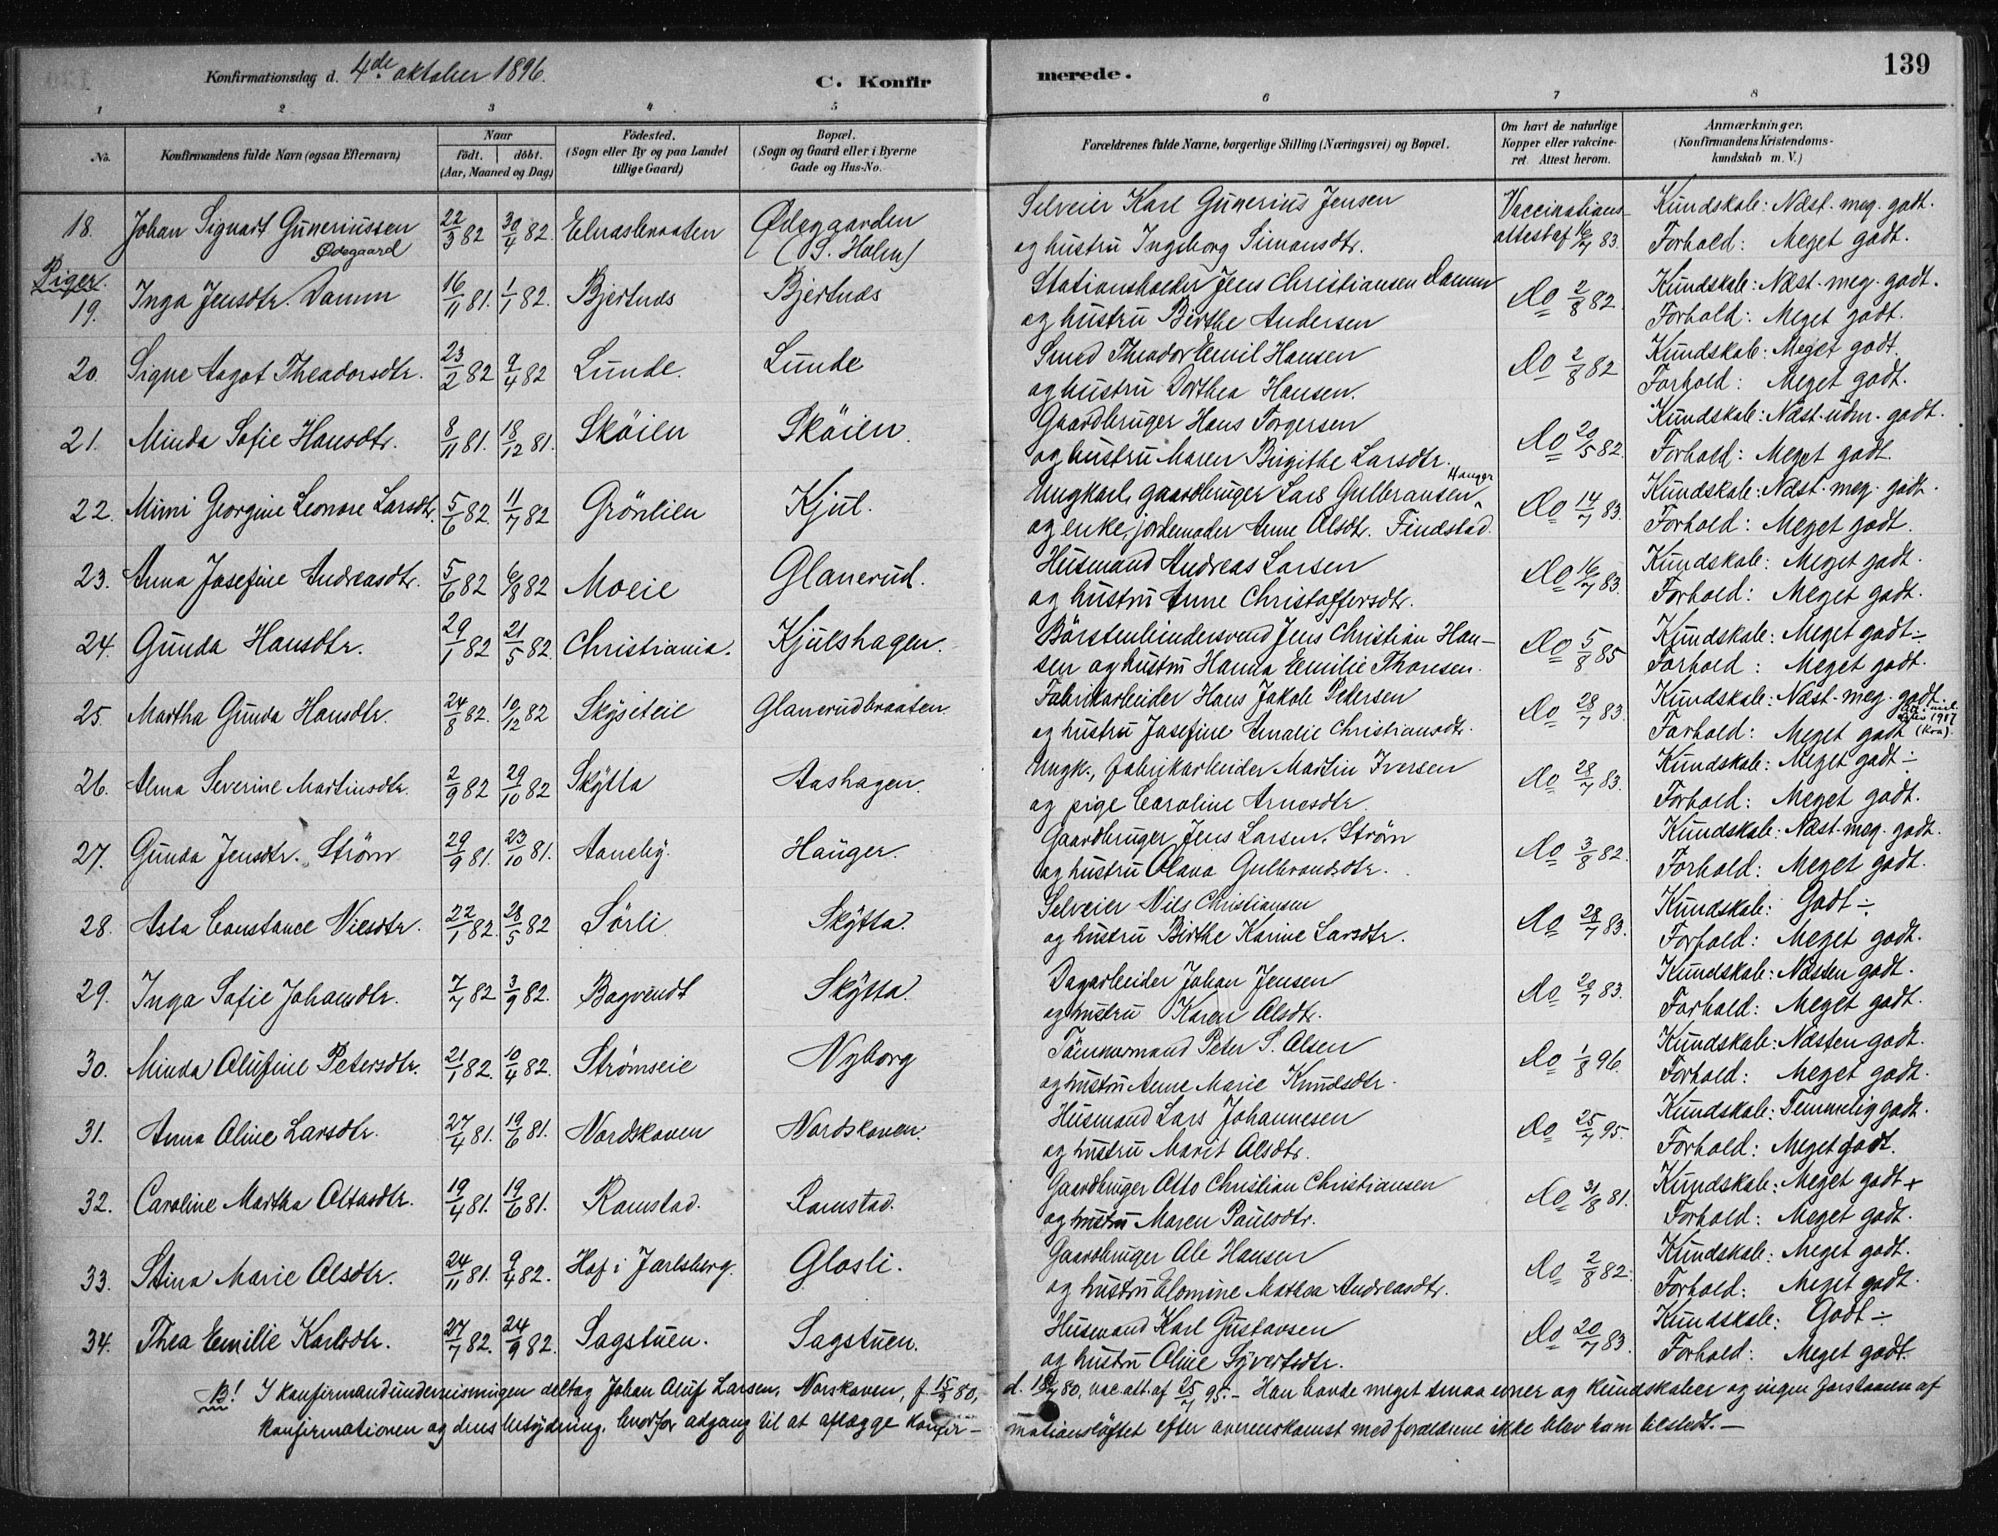 Konfirmationsdag d. 4de oktober 1896.
C. Konfirmerede.
139
1 2 3 4 5 6 7 8
No.
Konfirmandens fulde Navn (ogsaa Efternavn)
Naar
födt. döbt.
(Aar, Maaned og Dag)
Födested.
(Sogn eller By og paa Landet
tillige Gaard)
Bopæl.
(Sogn og Gaard eller i Byerne
Gade og Hus-No.
Forældrenes fulde Navne, borgerlige Stilling (Næringsvei) og Bopæl.
Om havt de naturlige
Kopper eller vakcine-
ret. Attest herom.
Anmærkninger.
(Konfirmandens Kristendoms-
kundskab m. V.)
18. Johan Sigvart Guneriussen 22/3 82 30/4 82. Elnasbraaten Ødegaarden Selveier Karl Gunerius Jensen Vaccinations- Kundskab: Næst. meg. godt.
Ødegaard (S. Holm) og hustru Ingeborg Simonsdtr. attest af 16/7 83. Forhold: Meget godt.
Piger.
19. Inga Jensdtr. Damm 16/11 81. 1/1 82. Bjertnæs Bjertnæs Stationsholder Jens Christiansen Damm Do 2/8 82. Kundskab: Næst. meg. godt.
og hustru Birthe Andersen Forhold: Meget godt.
20. Signe Aagot Theodorsdtr. 23/2 82 9/4 82 Lunde. Lunde Smed Theodor Emil Hansen Do 2/8 82 Kundskab: Meget godt.
og hustru Dorthea Hansen. Forhold: Meget godt.
21. Minda Sofie Hansdtr. 8/11 81. 18/12 81. Sköien Sköien. Gaardbruger Hans Torgersen Do 20/5 82. Kundskab: Næst. udm. godt.
og hustru Maren Birgithe Larsdtr. Forhold: Meget godt.
22. Mimi Georgine Leonore Larsdtr. 5/6 82 11/7 82 Grönlien Kjul. Ungkarl, gaardbruger Lars Gulbransen Hauger Do 14/7 83. Kundskab: Næst. meg. godt.
og enke, jordemoder Anne Olsdtr. Findstad. Forhold: Meget godt.
23. Anna Josefine Andreasdtr. 5/6 82 6/8 82 Moeie Glanerud. Husmand Andreas Larsen Do 16/7 83. Kundskab: Meget godt.
og hustru Anne Christoffersdtr. Forhold: Meget godt.
24. Gunda Hansdtr. 29/1 82 21/5 82. Christiania. Kjulshagen. Börstenbindersvend Jens Christian Han- Do 5/8 85 Kundskab: Meget godt ÷
sen og hustru Hanna Emilie Thonsen. Forhold: Meget godt.
25. Martha Gunda Hansdtr. 24/8 82. 10/12 82 Skÿseteie Glanerudbraaten. Fabrikarbeider Hans Jakob Pedersen Do 28/7 83. Kundskab: Næst. meg. godt.
og hustru Josefine Amalie Christiansdtr. Forhold: Meget godt 1907 (Kra).
26. Alma Severine Martinsdtr. 2/9 82 29/10 82 Skÿtta Aashagen. Ungk., fabrikarbeider Martin Iversen Do 28/7 83. Kundskab: Meget godt ÷
og pige Caroline Arnesdtr. Forhold: Meget godt.
27. Gunda Jensdtr. Strøm 29/9 81. 23/10 81. Aaneby. Hauger. Gaardbruger Jens Larsen Strøm Do 3/8 82. Kundskab: Næst. meg. godt.
og hustru Olava Gulbrandsdtr. Forhold: Meget godt.
28. Asta Constance Nilsdtr. 22/1 82. 28/5 82 Sörli Skÿtta. Selveier Nils Christiansen Do 28/7 83. Kundskab: Godt ÷
og hustru Birthe Karine Larsdtr. Forhold: Meget godt.
29. Inga Sofie Johansdtr. 7/7 82 3/9 82. Bagvendt Skÿtta. Dagarbeider Johan Jensen Do 20/7 83. Kundskab: Næsten godt.
og hustru Karen Olsdtr. Forhold: Meget godt.
30. Minda Olufine Petersdtr. 21/1 82. 10/4 82. Strömseie Nyborg Tömmermand Peter S. Olsen Do 1/8 96. Kundskab: Næsten godt.
og hustru Anne Marie Knudsdtr. Forhold: Meget godt.
31. Anna Oline Larsdtr. 27/4 81. 19/6 81. Nordskoven Nordskoven. Husmand Lars Johannesen Do 25/7 95. Kundskab: Temmelig godt.
og hustru Marit Olsdtr. Forhold: Meget godt.
32. Caroline Martha Ottosdtr. 19/4 81. 19/6 81. Ramstad. Ramstad. Gaardbruger Otto Christian Christiansen Do 31/8 81. Kundskab: Meget godt +
og hustru Maren Paulsdtr. Forhold: Meget godt.
33. Stina Marie Olsdtr. 24/11 81. 9/4 82. Hof i Jarlsberg. Glosli. Gaardbruger Ole Hansen Do 2/8 82. Kundskab: Meget godt.
og hustru Elomine Mathea Andreasdtr. Forhold: Meget godt.
34. Thea Emilie Karlsdtr. 27/7 82. 24/9 82. Sagstuen. Sagstuen. Husmand Karl Gustavsen Do 20/7 83. Kundskab: Godt ÷
og hustru Oline Syvertsdtr. Forhold: Meget godt.
NB! I konfirmandundervisningen deltog Johan Oluf Larsen, Norskoven, f. 80, d. 80, vac. att. af 25/7 95. – Han havde meget smaa evner og kundskaber og ingen forstaaen af
konfirmationen og dens betydning, hvorfor adgang til at aflægge konfir- mationslöftet efter overenskomst med forældrene ikke blev ham tilstedt. –